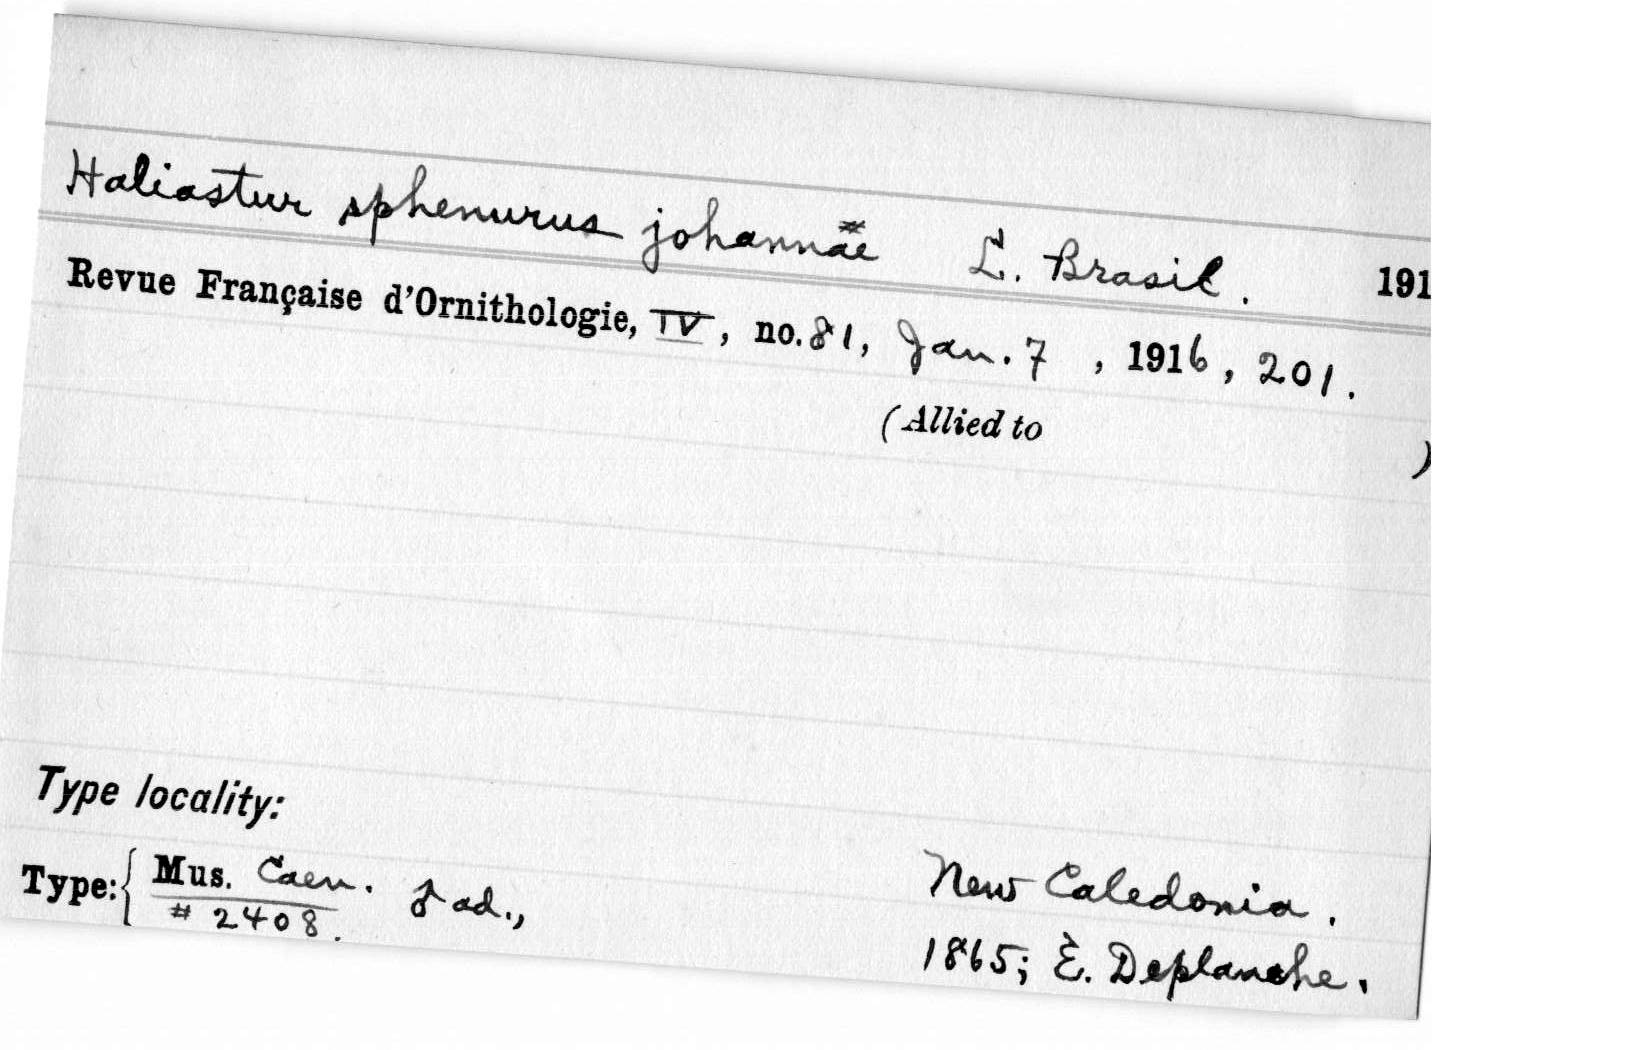 Haliastur sphenurus johannae L. Brasil. 191
Revue Française d'Ornithologie, IV, no. 81, Jan. 7, 1916, 201.
(Allied to )
Type locality:
New Caledonia.
Type: { Mus. Caen. ♂ ad., 1865; É. Deplanche.
# 2408.